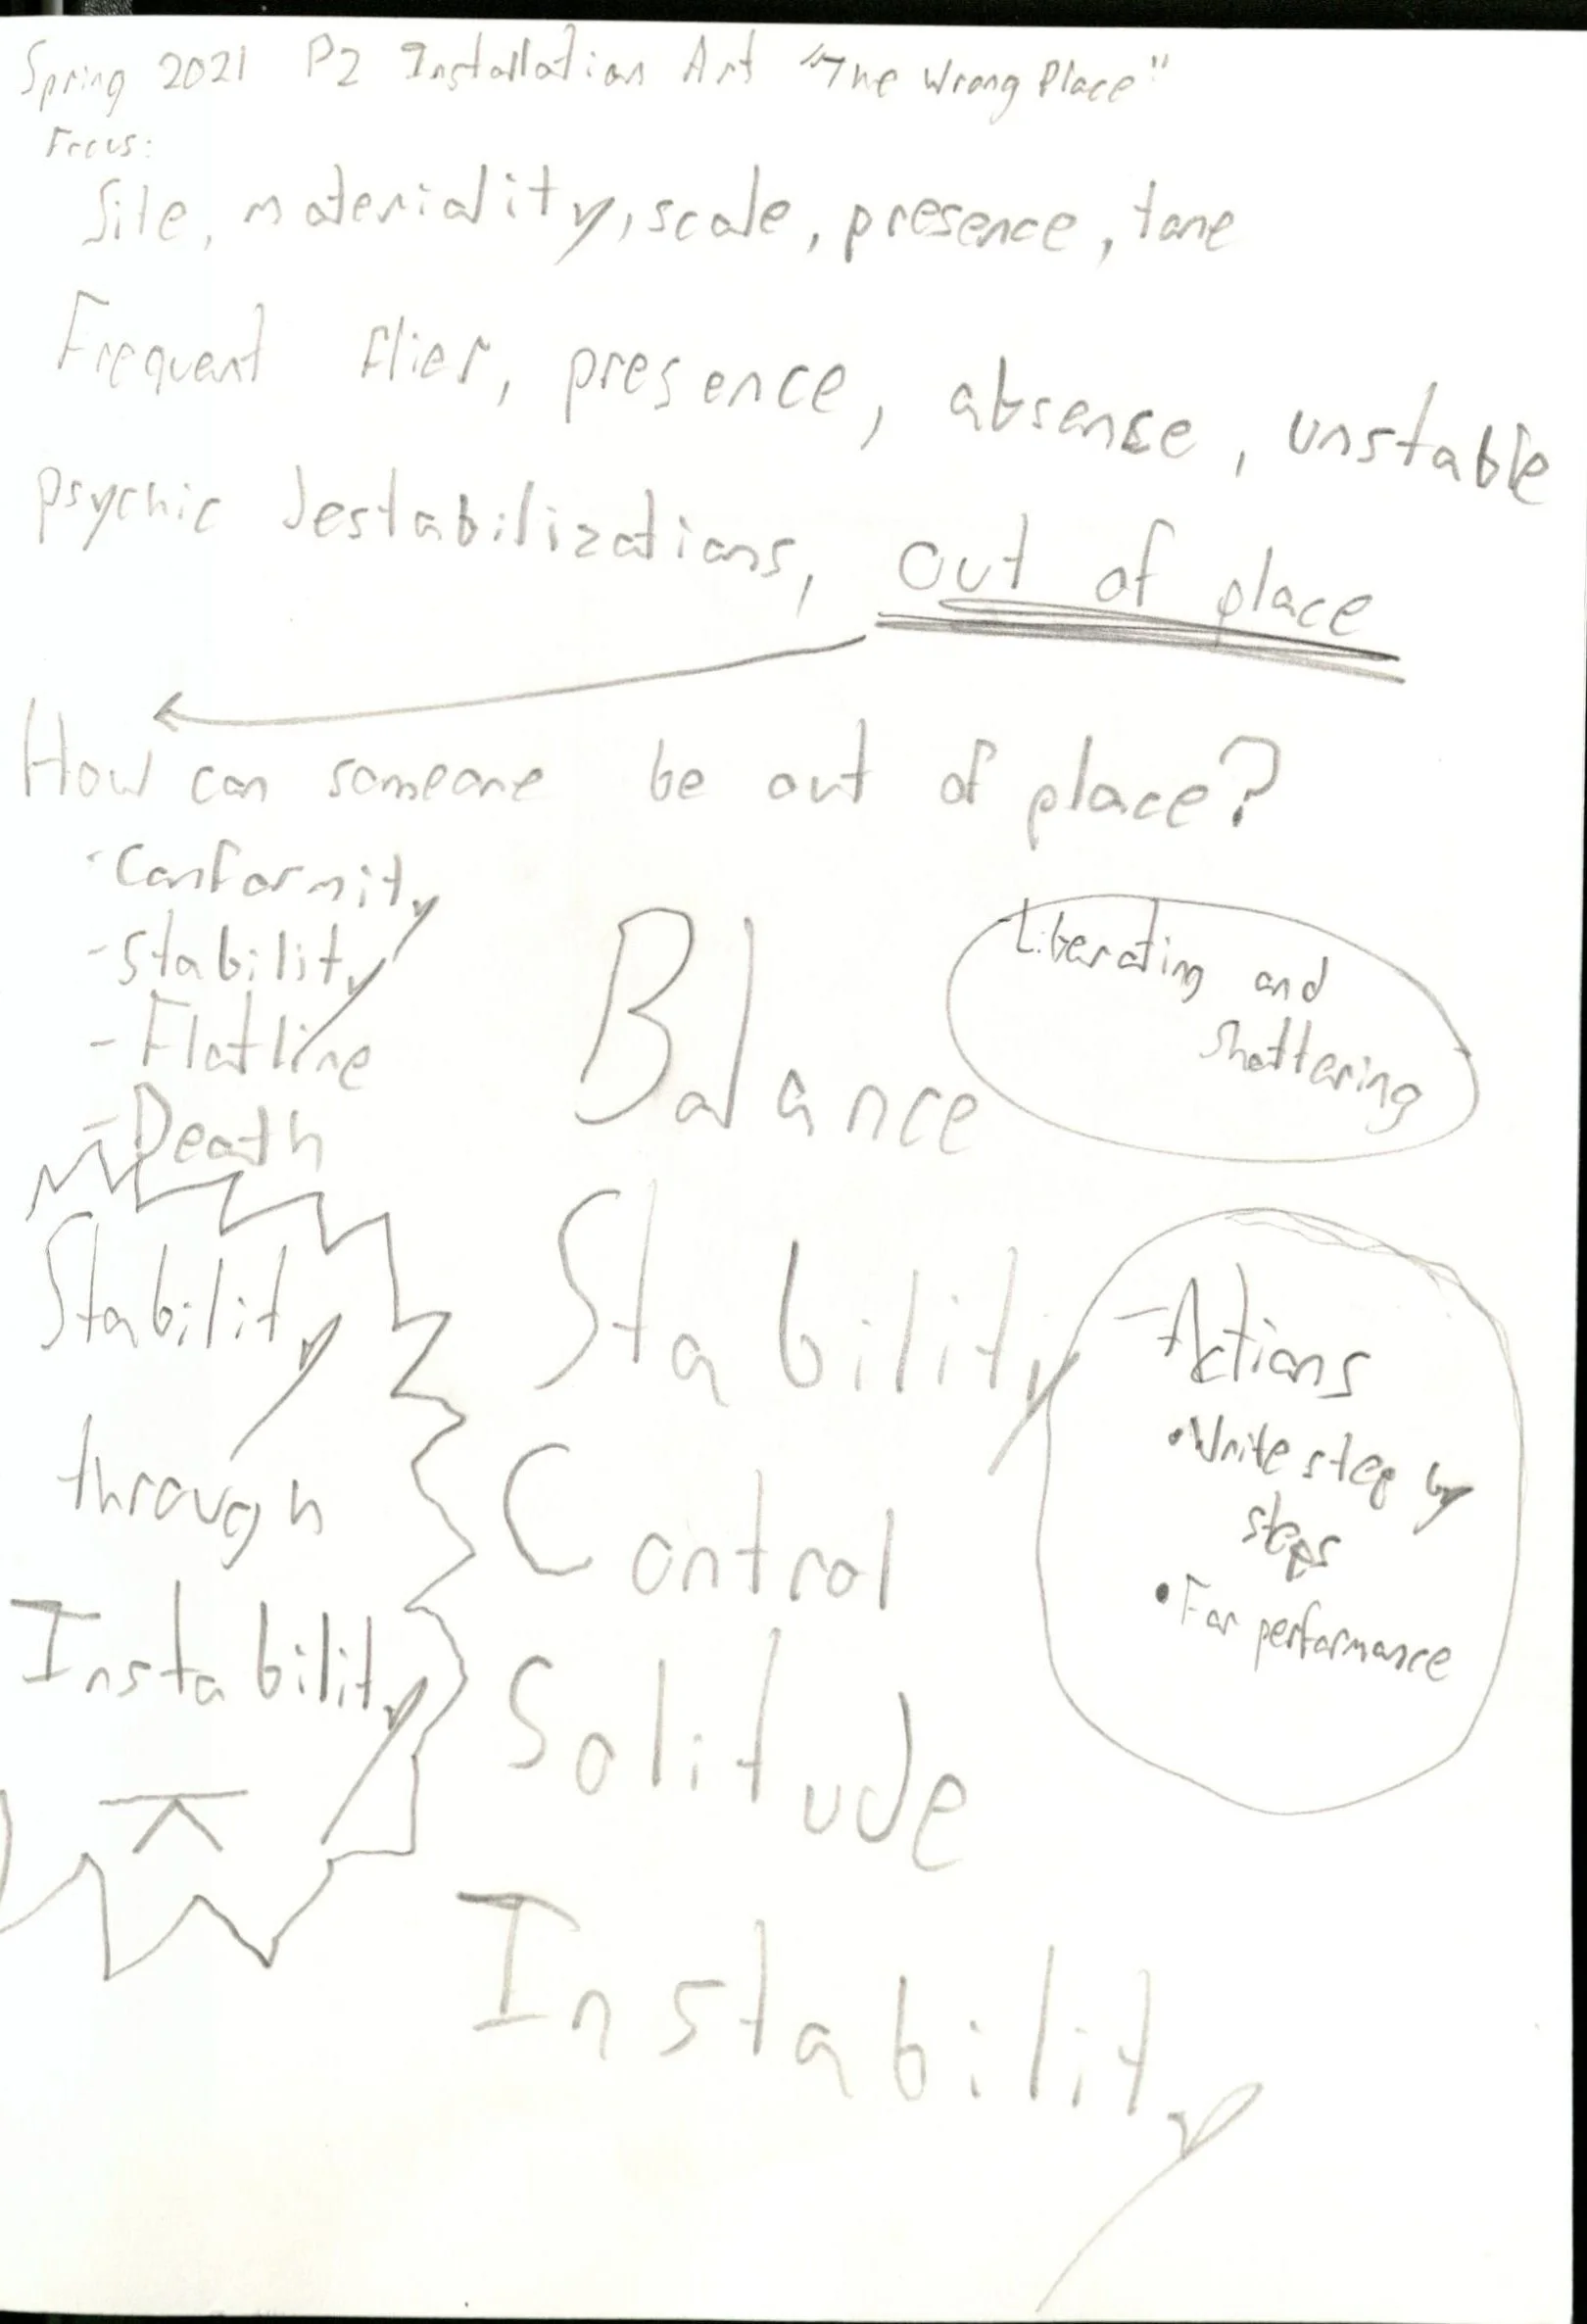 Spring 2021 P2 Installation Art "The Wrong Place"
Focus:
Site, materiality, scale, presence, tone
Frequent flier, presence, absense, unstable
psychic destabilizations, out of place
How can someone be out of place?
-Conformity
-Stability
-Flatline
-Death
Balance
-Liberating and
shattering
Stability
through
Instability
Stability
Control
Solitude
Instability
-Actions
•Write step by
steps
•For performance